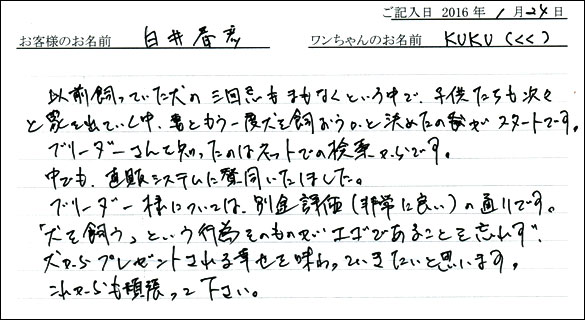 ご記入日 2016年 1月24日
お客様のお名前 白井春彦 ワンちゃんのお名前 KUKU(くく)
以前飼っていた犬の三回忌もまもなくという中で、子供たちも次々
と家を出ていく中、妻ともう一度犬を飼おうかと決めたのがスタートです。
ブリーダーさんを知ったのはネットでの検索からです。
中でも、直販システムに賛同いたしました。
ブリーダー様については、別途評価(非常に良い)の通りです。
「犬を飼う」という行為そのものがエゴであることを忘れず、
犬からプレゼントされる幸せを味わっていきたいと思います。
これからも頑張って下さい。